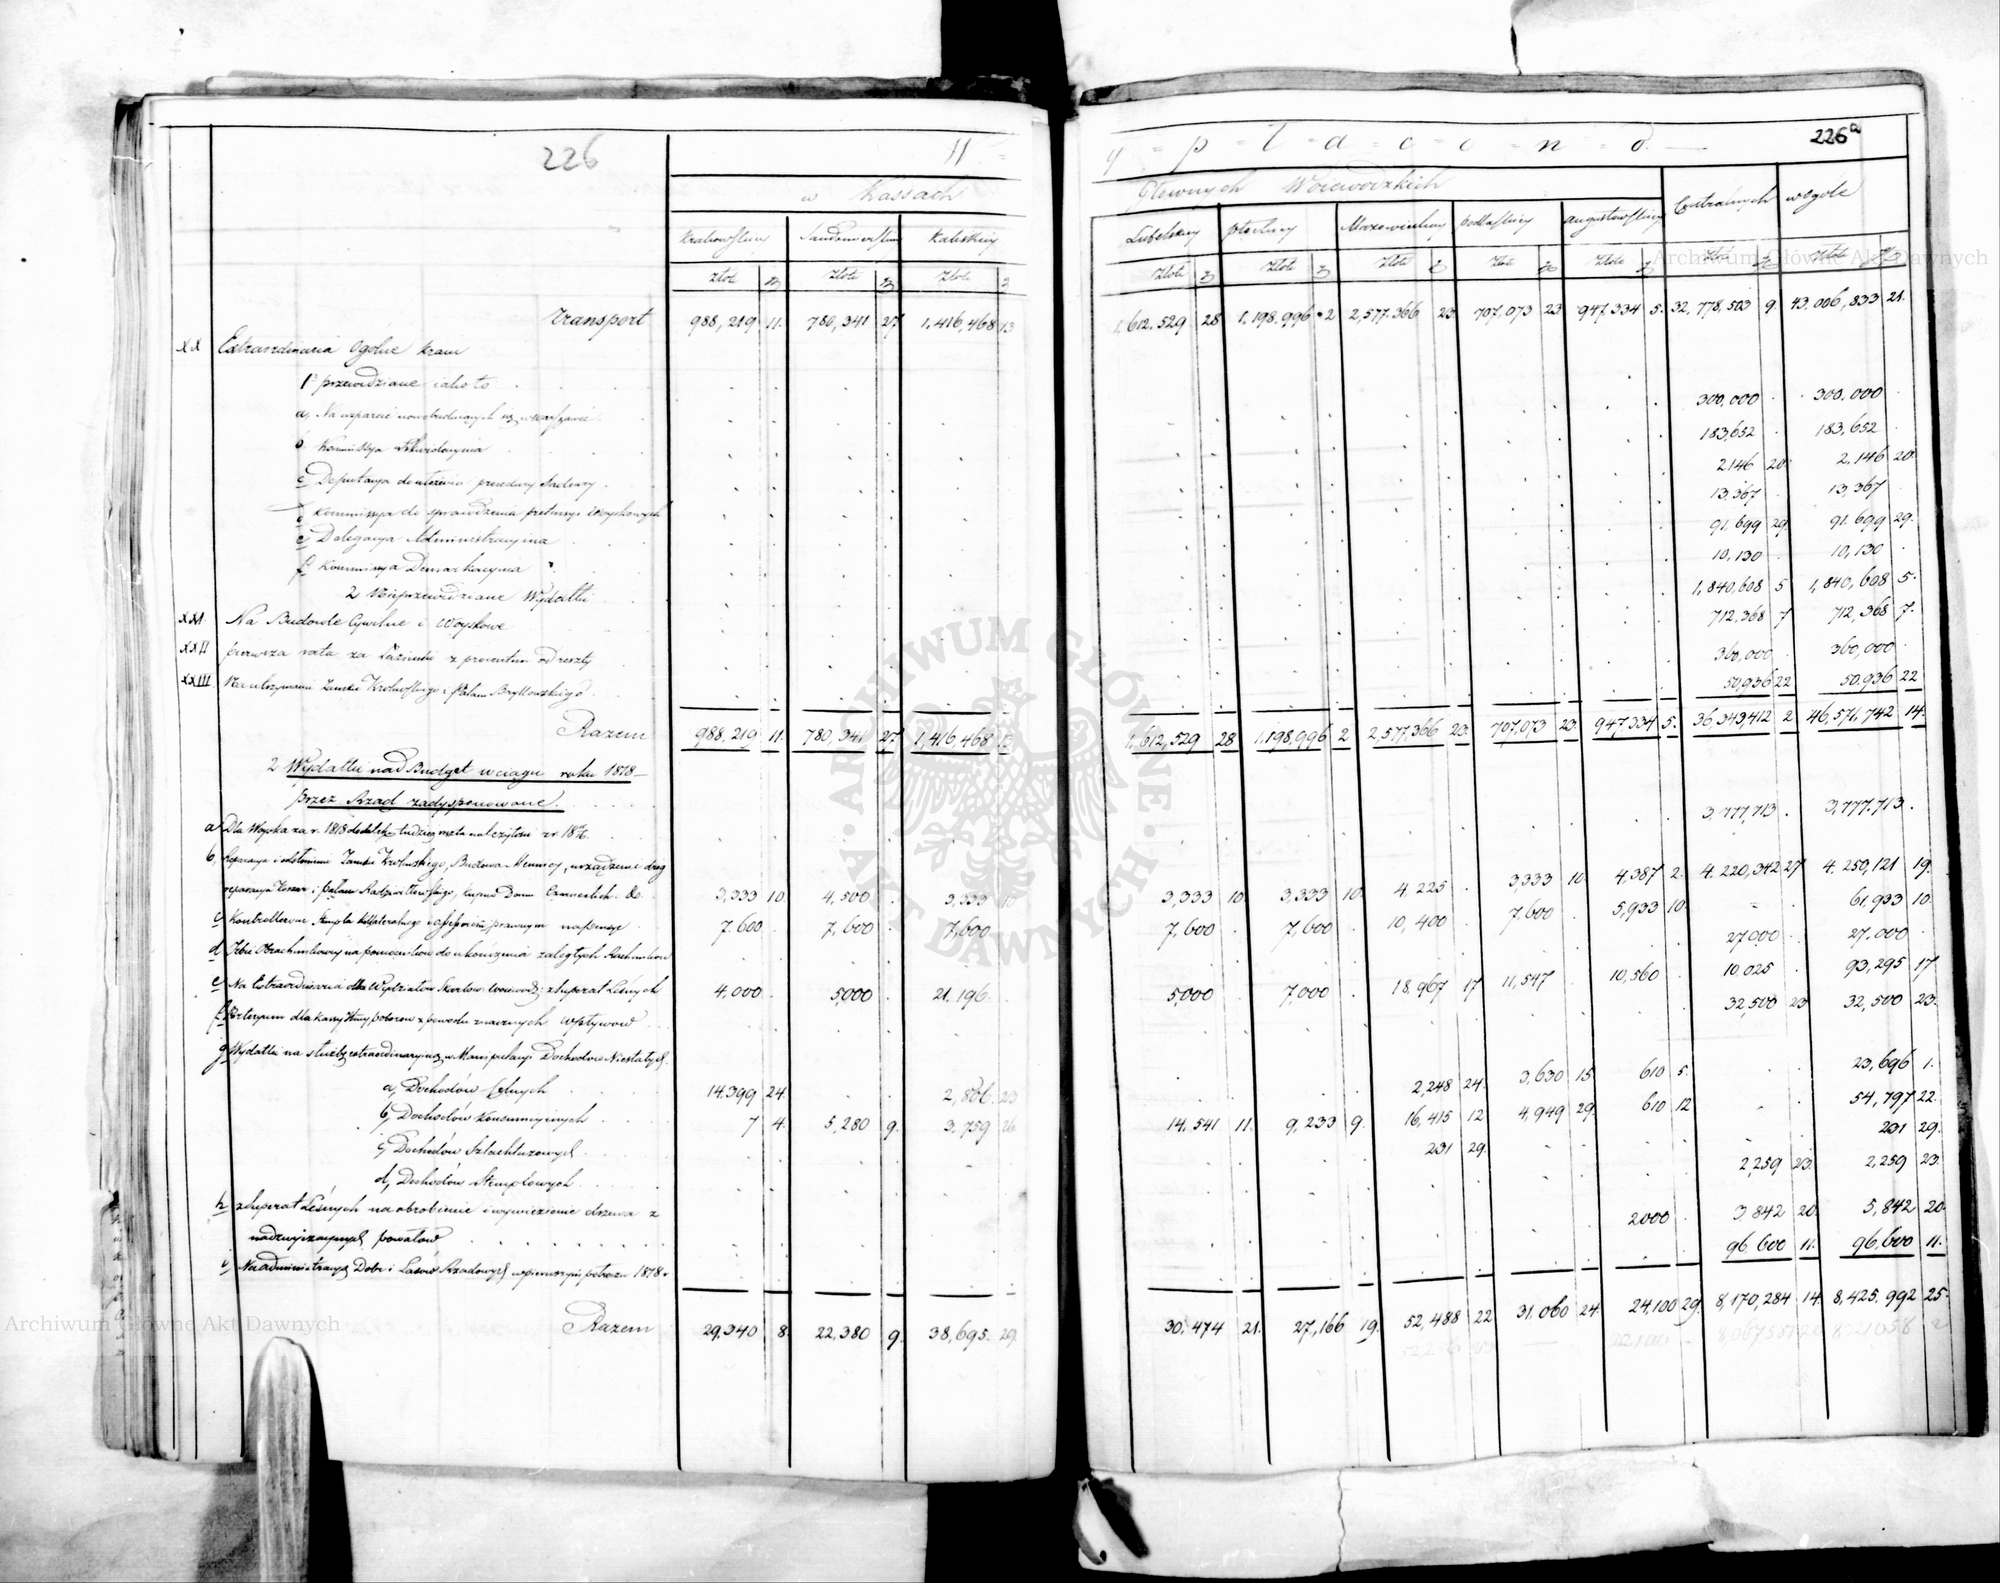 226
w Kassach
Krakowskiey Sandomierskiey Kaliskiey
Złote gr Złote gr Złote gr
Transport 988,219 11. 780,341 27 1,416,468 13
XX Extraordinaria Ogólne Kraiu
1º przewidziane iako to
a, Na wsparcie nowobuduiących się w Warszawie
b Kommissya Likwidacyina
c Deputacya do ułożenia procedury Sądowey
d Kommissya do sprawdzenia pretensyi Woyskowych
e Delegacya Administracyina
f Kommissya Demarkacyina
2 Nieprzewidziane Wydatki
XXI Na Budowle Cywilne i Woyskowe
XXII pierwsza rata za Łazienki z procentem od reszty
XXIII Na utrzymanie Zamku Królewskiego i Pałacu Bryllowskiego
Razem 988,219 11. 780,341 27. 1,416,468 13
2 Wydatki nad Budget w ciągu roku 1818
przez Rząd zadysponowane.
a Dla Woyska za r. 1818
b, Reparacya Zamku Królewskiego, Budowa Mennicy, urządzenie dróg
reparacya Koszar i Pałacu Radziwiłłowskiego, kupno Domu &c. 3,333 10. 4,500 3,333 10
c, 7.600 7,600 7,600
d Izbie Obrachunkowey na pomocników do ukończenia zaległych Rachunków
e Na Extraordinaria dla Wydziałów Skarbow. 4,000 5,000 21,196
f, dla Kassy z powodu znacznych wpływów
g Wydatki na służbę extraordynaryiną w Manipulacyi Dochodów Niestałych
a, Dochodów Celnych 14.399 24. 2,806 23
b, Dochodów Konsumcyinych 7 4. 5,280 9. 3,759 26
c, Dochodów Szlachtuzowych
d, Dochodów Stemplowych
h Leśnych na obrobienie i wywiezienie drzewa z
nadzwyczaynych powałów
i, Na administracyą Dóbr i Lasów Rządowych w pierwszym półroczu 1818 r
Razem 29,340 8. 22,380 9. 38,695. 29
226a
y = p = ł = a = c = o = n = o
Głównych Woiewódzkich Centralnych w ogóle
Lubelskiey Płockiey Mazowieckiey Podlaskiey Augustowskiey
Złote gr Złote gr Złote gr Złote gr Złote gr Złote gr Złote gr
1,612,529 28 1,198,996 2 2,577,366 23 707,073 23 947,334 5. 32,778,503 9. 43,006,833 21.
300,000 300,000
183,652 183,652
2146 20 2,146 20
13,367 13,367
91,699 29 91,699 29.
10,130 10,130
1,840,608 5 1,840,608 5.
712,368 7 712,368 7.
360,000 360,000
50,936 22 50,936 22
1,612,529 28 1,198,996 2 2,577,366 23. 707,073 23. 947,334 5. 36,343,412 2 46,571,742 14.
3,777,713 3,777,713
3,333 10. 3,333 10. 4,225 3333 10 4,387 2. 4,220,342 27 4,250,121 19.
7,600 7,600 10,400 7,600 5,933 10. 61,933 10.
27000 27,000
5,000 7,000 18,967 17 11,547 10,560 10,025 93,295 17
32,500 23 32,500 23.
2,248 24. 3,630 15 610 5. 23,696 1.
14,541 11. 9,233 9. 16,415 12 4,949 29. 610 12 54,797 22.
231 29. 231 29.
2,259 23. 2,259 23.
2000 3,842 20. 5,842 20.
96,600 11. 96,600 11.
30,474 21. 27,166 19. 52,488 22 31,060 24. 24,100 29. 8,170,284 14. 8,425,992 25.
Archiwum Główne Akt Dawnych
Archiwum Główne Akt Dawnych
ARCHIWUM GŁÓWNE AKT DAWNYCH